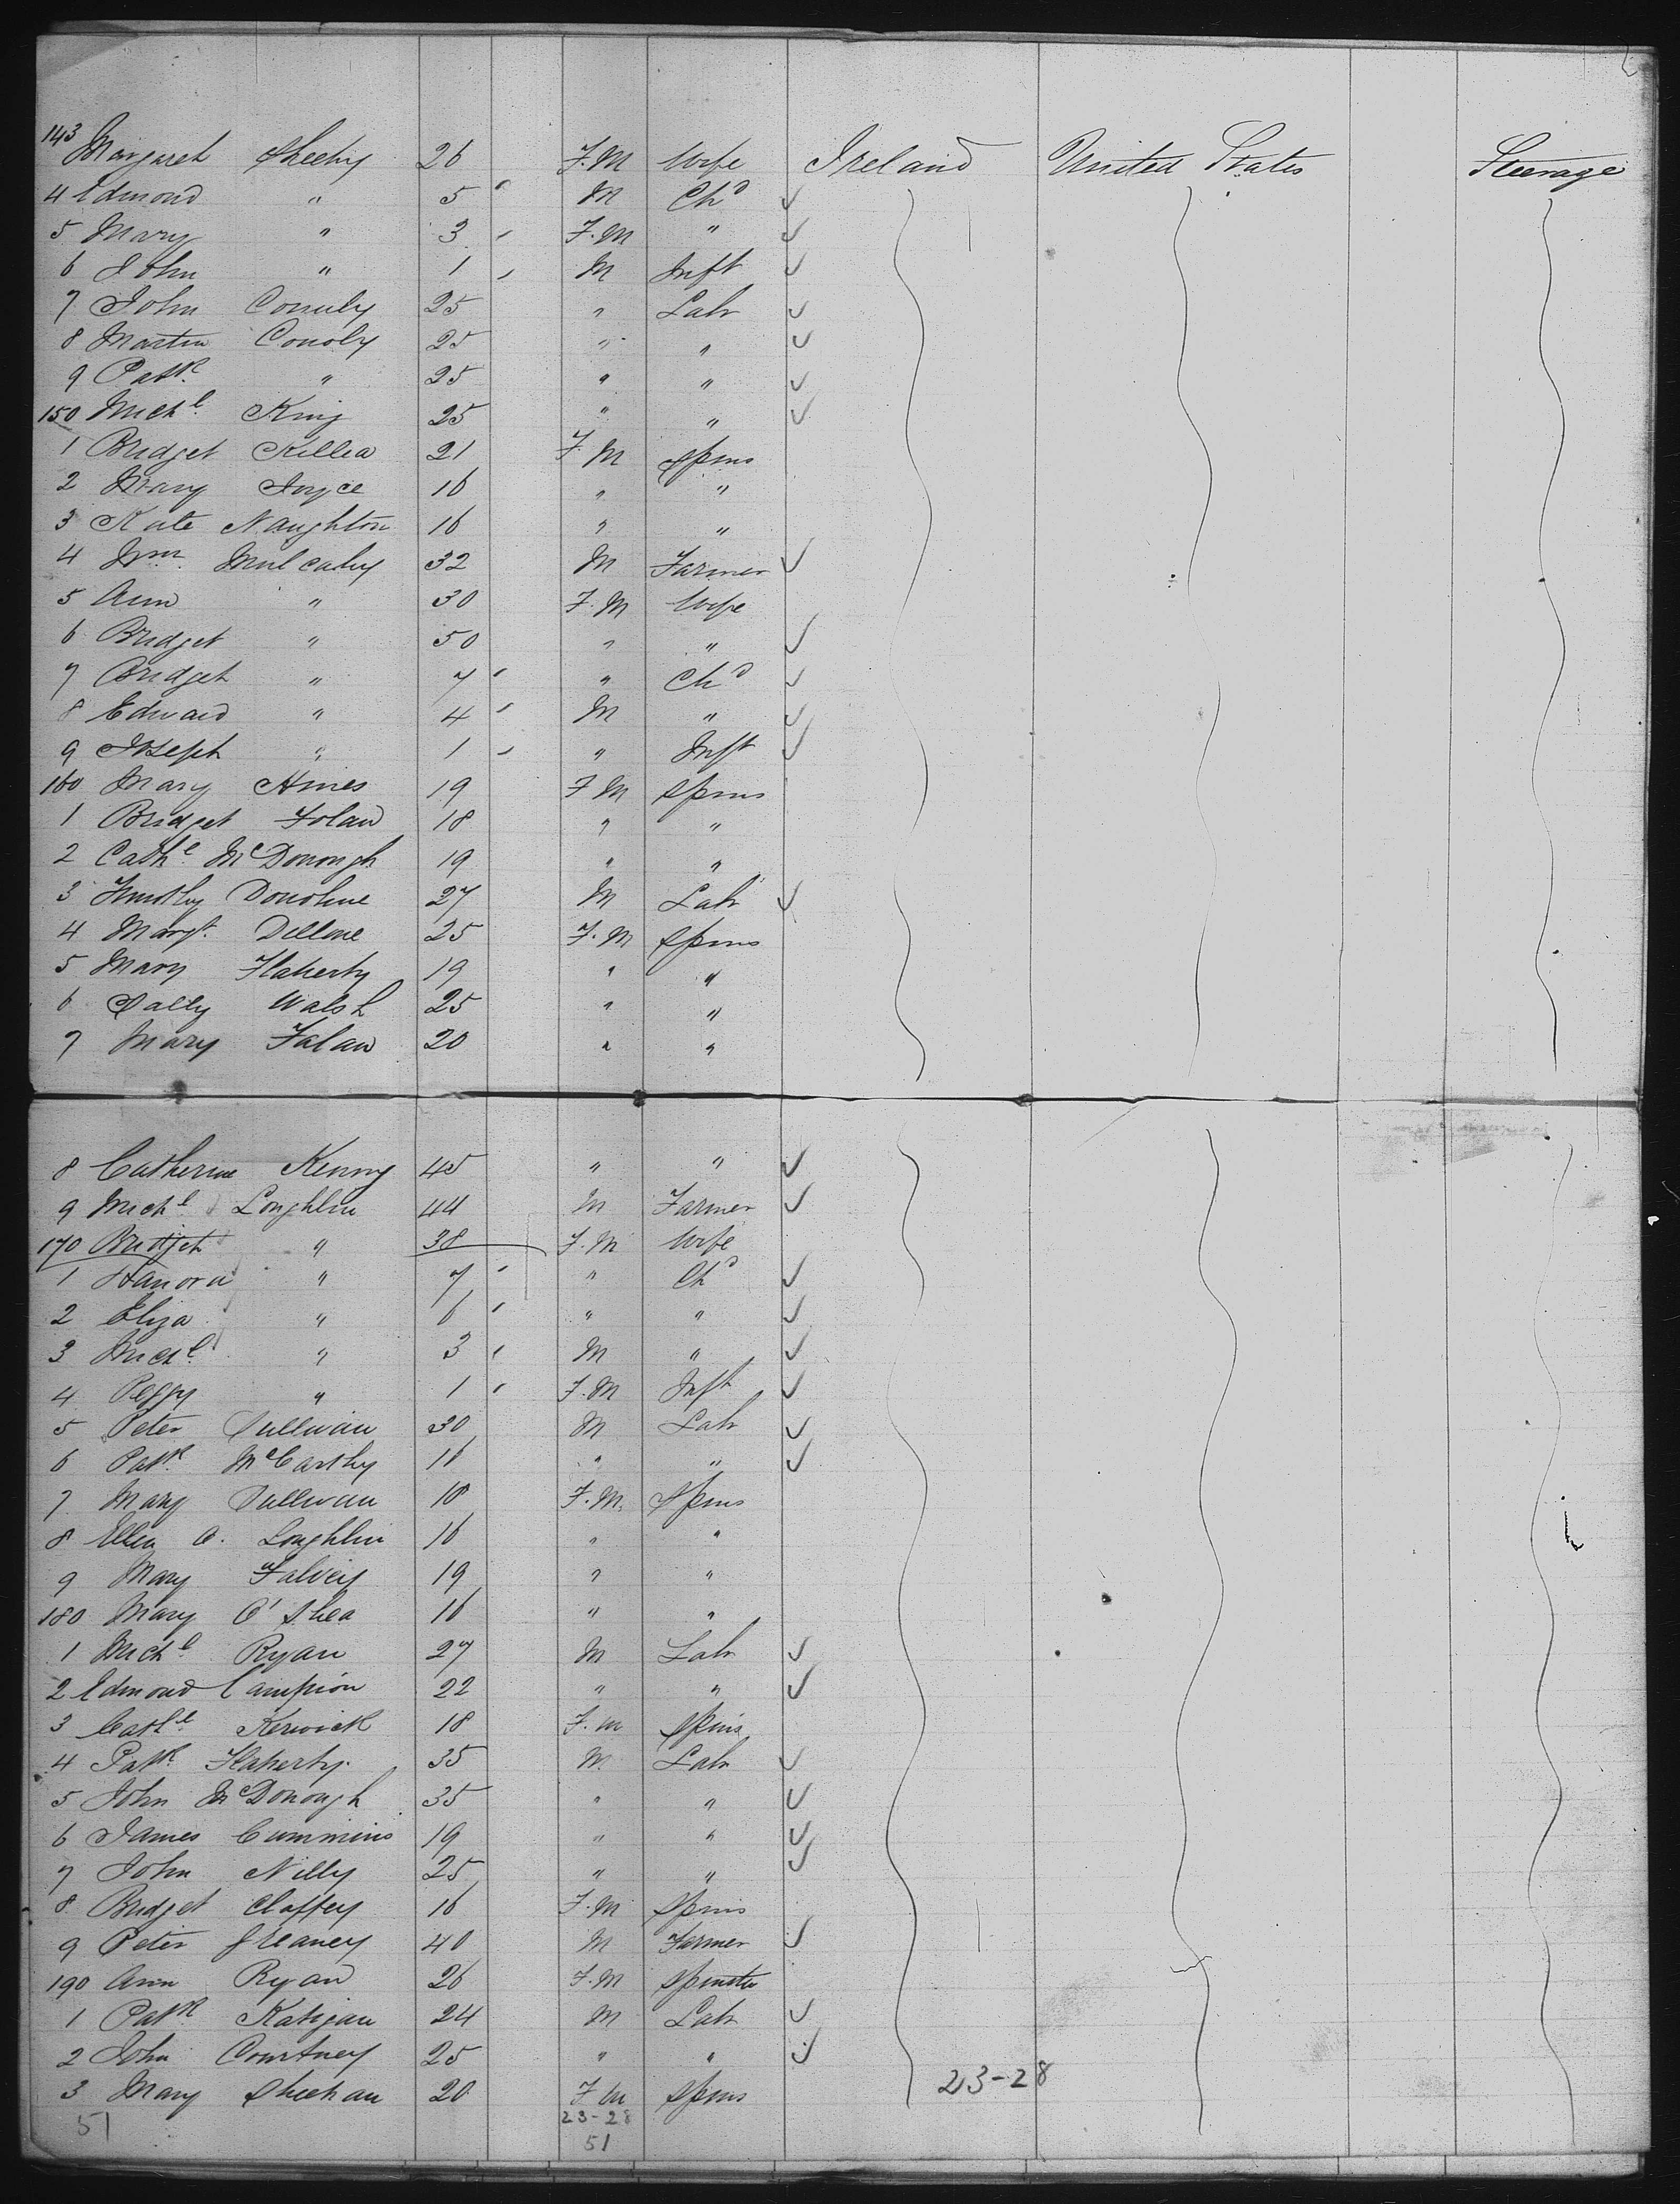 143 Margaret Sheehy 26 F.M Wife Ireland United States Steerage
4 Edmond " 5 M Chd
5 Mary " 3 F.M "
6 John " 1 M Inft
7 John Connely 25 " Labr
8 Martin Conoly 25 " "
9 Patk " 25 " "
150 Michl King 25 " "
1 Bridget Killea 21 F.M Spins
2 Mary Joyce 16 " "
3 Kate Naughton 16 " "
4 Wm Mulcahy 32 M Farmer
5 Ann " 30 F.M Wife
6 Bridget " 50 " "
7 Bridget " 7 " Chd
8 Edward " 4 M "
9 Joseph " 1 " Inft
160 Mary Hines 19 F M Spins
1 Bridget Folan 18 " "
2 Cathe McDonough 19 " "
3 Timothy Donohue 27 M Labr
4 Margt Dillone 25 F.M Spins
5 Mary Flaherty 19 " "
6 Sally Walsh 25 " "
7 Mary Falan 20 " "
8 Catherine Kenny 45 " "
9 Michl Loughlin 44 M Farmer
170 Bridget " 38 F.M Wife
1 Hanora " 7 " Chd
2 Eliza " 6 " "
3 Michl " 3 M "
4 Peggy " 1 F.M Inft
5 Peter Sullivan 30 M Labr
6 Patk McCarthy 16 " "
7 Mary Sullivan 18 F.M. Spins
8 Ellen O. Loughlin 16 " "
9 Mary Falvey 19 " "
180 Mary O'Shea 16 " "
1 Michl Ryan 27 M Labr
2 Edmond Campion 22 " "
3 Cathe Kerwick 18 F.M Spins
4 Patk Flaherty 35 M Labr
5 John McDonough 35 " "
6 James Cummins 19 " "
7 John Nilly 25 " "
8 Bridget Claffey 16 F.M Spins
9 Peter Greaney 40 M Farmer
190 Ann Ryan 26 F.M Spinster
1 Patk Katigan 24 M Labr
2 John Courtney 25 " "
3 Mary Sheehan 20 F M Spins 23-28
51 23-28
51